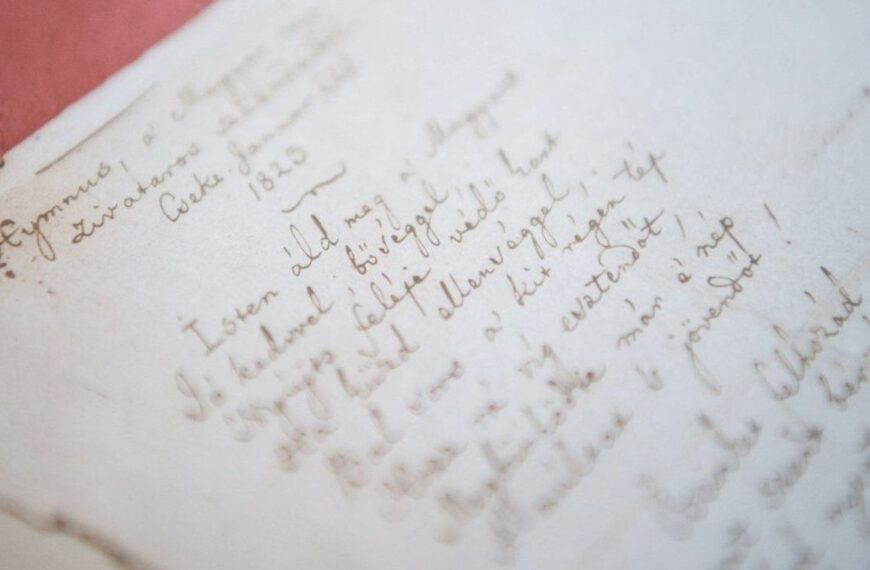 Hymnus, a' Magyar
zivataros
Cseke Januar
1823
Isten áld meg a' Magyart
Jó kedvel bőséggel,
Nyújts feléje védő kart
Ha küzd ellenséggel;
Bal sors a' kit régen tép
Hozz rá víg esztendőt!
Megbünhödte már e' nép
A' multat 's jövendőt!
felhozád
szent